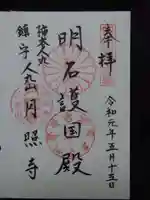 奉拝
明石護国殿
陪奉人丸
鎮守人丸山月照寺
令和元年五月十五日